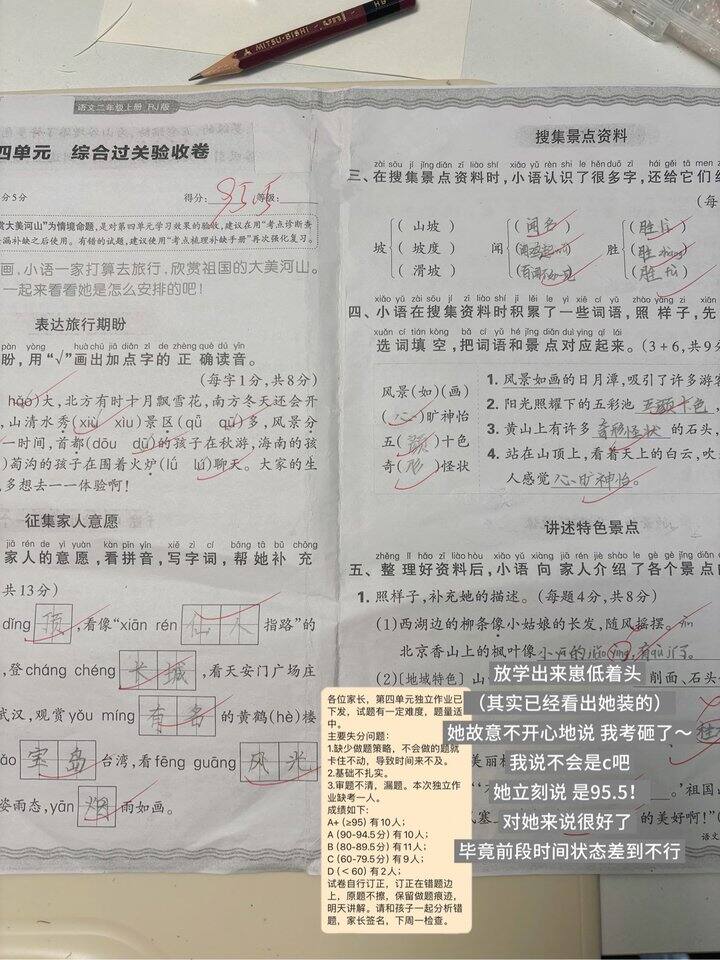 MITSU-BISHI
HB
语文二年级上册 RJ版
四单元 综合过关验收卷
分5分
得分：95.5 等级：
赏大美河山”为情境命题，是对第四单元学习效果的验收，建议在用“考点诊断查
漏补缺之后使用。有错的试题，建议使用“考点梳理补缺手册”再次强化复习。
画，小语一家打算去旅行，欣赏祖国的大美河山。
一起来看看她是怎么安排的吧！
表达旅行期盼
pàn yòng huà chū jiā diǎn zì de zhèng què dú yīn
盼，用“√”画出加点字的正确读音。
（每字1分，共8分）
hǎo)大，北方有时十月飘雪花，南方冬天还会开
，山清水秀(xiù xiu)景区(qǖ qū)多，风景分
一时间，首都(dōu dū)的孩子在秋游，海南的孩
萄沟的孩子在围着火炉(lú lú)聊天。大家的生
多想去一一体验啊！
征集家人意愿
jiā rén de yì yuàn kàn pīn yīn xiě zì cí bāng tā bǔ chōng
家人的意愿，看拼音，写字词，帮她补充
共13分）
dǐng 顶，看像“xiān rén 仙人 指路”的
，登cháng chéng 长城，看天安门广场庄
武汉，观赏yǒu míng 有名 的黄鹤(hè)楼
ǎo 宝岛 台湾，看fēng guāng 风光
姿雨态，yān 烟 雨如画。
搜集景点资料
zài sōu jí jǐng diǎn zī liào shí xiǎo yǔ rèn shi le hěn duō zì hái gěi tā men z
三、在搜集景点资料时，小语认识了很多字，还给它们组
（每
坡 （山坡） （坡度） （滑坡）
闻 （闻名）
胜 （胜lì）
四、小语在搜集资料时积累了一些词语，照样子，先
xuǎn cí tián kòng bǎ cí yǔ hé jǐng diǎn duì yìng qǐ lái
选词填空，把词语和景点对应起来。（3+6，共9分
风景(如)(画)
(心)旷神怡
五(颜)十色
奇(形)怪状
1. 风景如画的日月潭，吸引了许多游客
2. 阳光照耀下的五彩池 五颜十色，
3. 黄山上有许多 奇形怪状 的石头，
4. 站在山顶上，看着天上的白云，吹
人感觉 心旷神怡。
讲述特色景点
zhěng lǐ hǎo zī liào hòu xiǎo yǔ xiàng jiā rén jiè shào le gè gè jǐng diǎn
五、整理好资料后，小语向家人介绍了各个景点的
1. 照样子，补充她的描述。（每题4分，共8分）
(1)西湖边的柳条像小姑娘的长发，随风摇摆。
北京香山上的枫叶像
(2)[地域特色] 山
削面、石头
美丽
，祖国
的美好啊！”（
语文
各位家长，第四单元独立作业已
下发，试题有一定难度，题量适
中。
主要失分问题：
1.缺少做题策略，不会做的题就
卡住不动，导致时间来不及。
2.基础不扎实。
3.审题不清，漏题。本次独立作
业缺考一人。
成绩如下：
A+ (≥95) 有10人；
A (90-94.5分) 有10人；
B (80-89.5分) 有11人；
C (60-79.5分) 有9人；
D (＜60) 有2人；
试卷自行订正，订正在错题边
上，原题不擦，保留做题痕迹，
明天讲解。请和孩子一起分析错
题，家长签名，下周一检查。
放学出来崽低着头
（其实已经看出她装的）
她故意不开心地说 我考砸了～
我说不会是c吧
她立刻说 是95.5！
对她来说很好了
毕竟前段时间状态差到不行